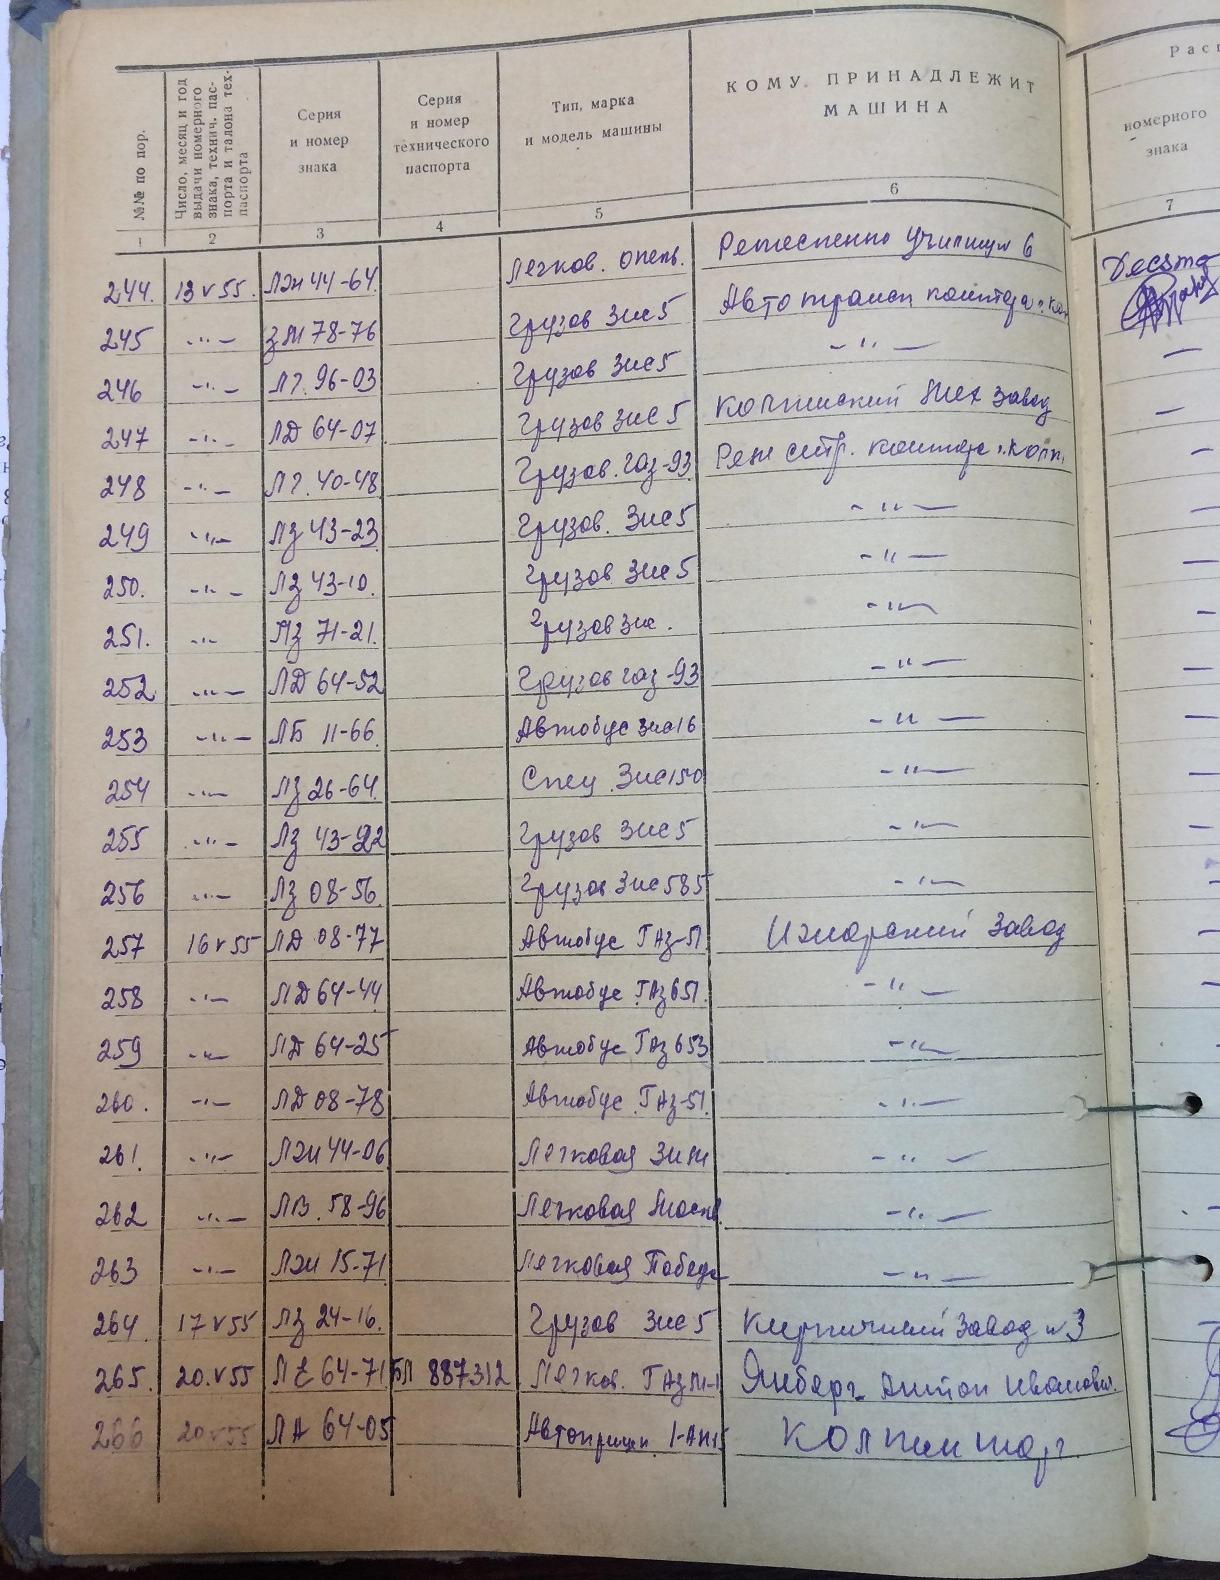 №№ по пор.
Число, месяц и год
выдачи номерного
знака, технич. пас-
порта и талона тех-
паспорта
Серия
и номер
знака
Серия
и номер
технического
паспорта
Тип, марка
и модель машины
КОМУ ПРИНАДЛЕЖИТ
МАШИНА
Расп
номерного
знака
1 2 3 4 5 6 7
244. 13 V 55. ЛЭи 44-64. Легков. опель. Ремесленно Училищи 6
245 -"- 78-76 Грузов Зис 5 Авто трансп контора "Кол
246 -"- ЛГ. 96-03 Грузов Зис 5 -"-
247 -"- ЛД 64-07 Грузов Зис 5 Колпинский Мех завод
248 -"- ЛГ. 40-48 Грузов. Газ-93 Рем стр. контора "Колп.
249 -"- ЛЗ 43-23 Грузов. Зис 5 -"-
250. -"- ЛЗ 43-10. Грузов Зис 5 -"-
251. -"- ЛЗ 71-21. Грузов Зис. -"-
252 -"- ЛД 64-52 Грузов Газ-93 -"-
253 -"- ЛБ 11-66 Автобус Зис 16 -"-
254 -"- ЛЗ 26-64 Спец. Зис 150 -"-
255 -"- ЛЗ 43-22 Грузов Зис 5 -"-
256 -"- ЛЗ 08-56 Грузов Зис 585 -"-
257 16 V 55 ЛД 08-77 Автобус ГАЗ-51 Ижорский Завод
258 -"- ЛД 64-44 Автобус ГАЗ 651. -"-
259 -"- ЛД 64-25 Автобус ГАЗ 653 -"-
260. -"- ЛД 08-78 Автобус ГАЗ-51. -"-
261. -"- ЛЭи 44-06 Легковая Зим -"-
262 -"- ЛВ. 58-96 Легковая Москв. -"-
263 -"- ЛЭи 15-71 Легковая Победа -"-
264 17 V 55 ЛЗ 24-16. Грузов Зис 5 Кирпичный Завод № 3
265. 20. V 55 ЛЕ 64-71 БЛ 887312 Легков. ГАЗ М-1 Янберг Антон Иванович.
266 20 V 55 ЛА 64-05 Автоприцеп 1-АП1,5 Колпинторг